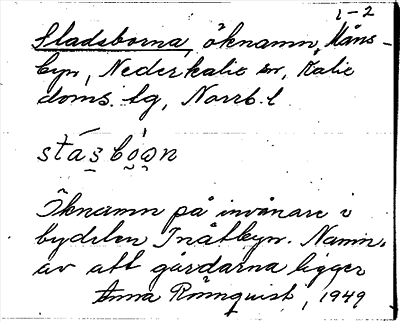 1-2
Stadsborna, öknamn, Måns-
byn, Nederkalix sn, Kalix
doms. lg, Norrb. l
Öknamn på invånare i
bydelen Inåtbyn. Namn.
av att gårdarna ligger
Anna Rönnquist, 1949